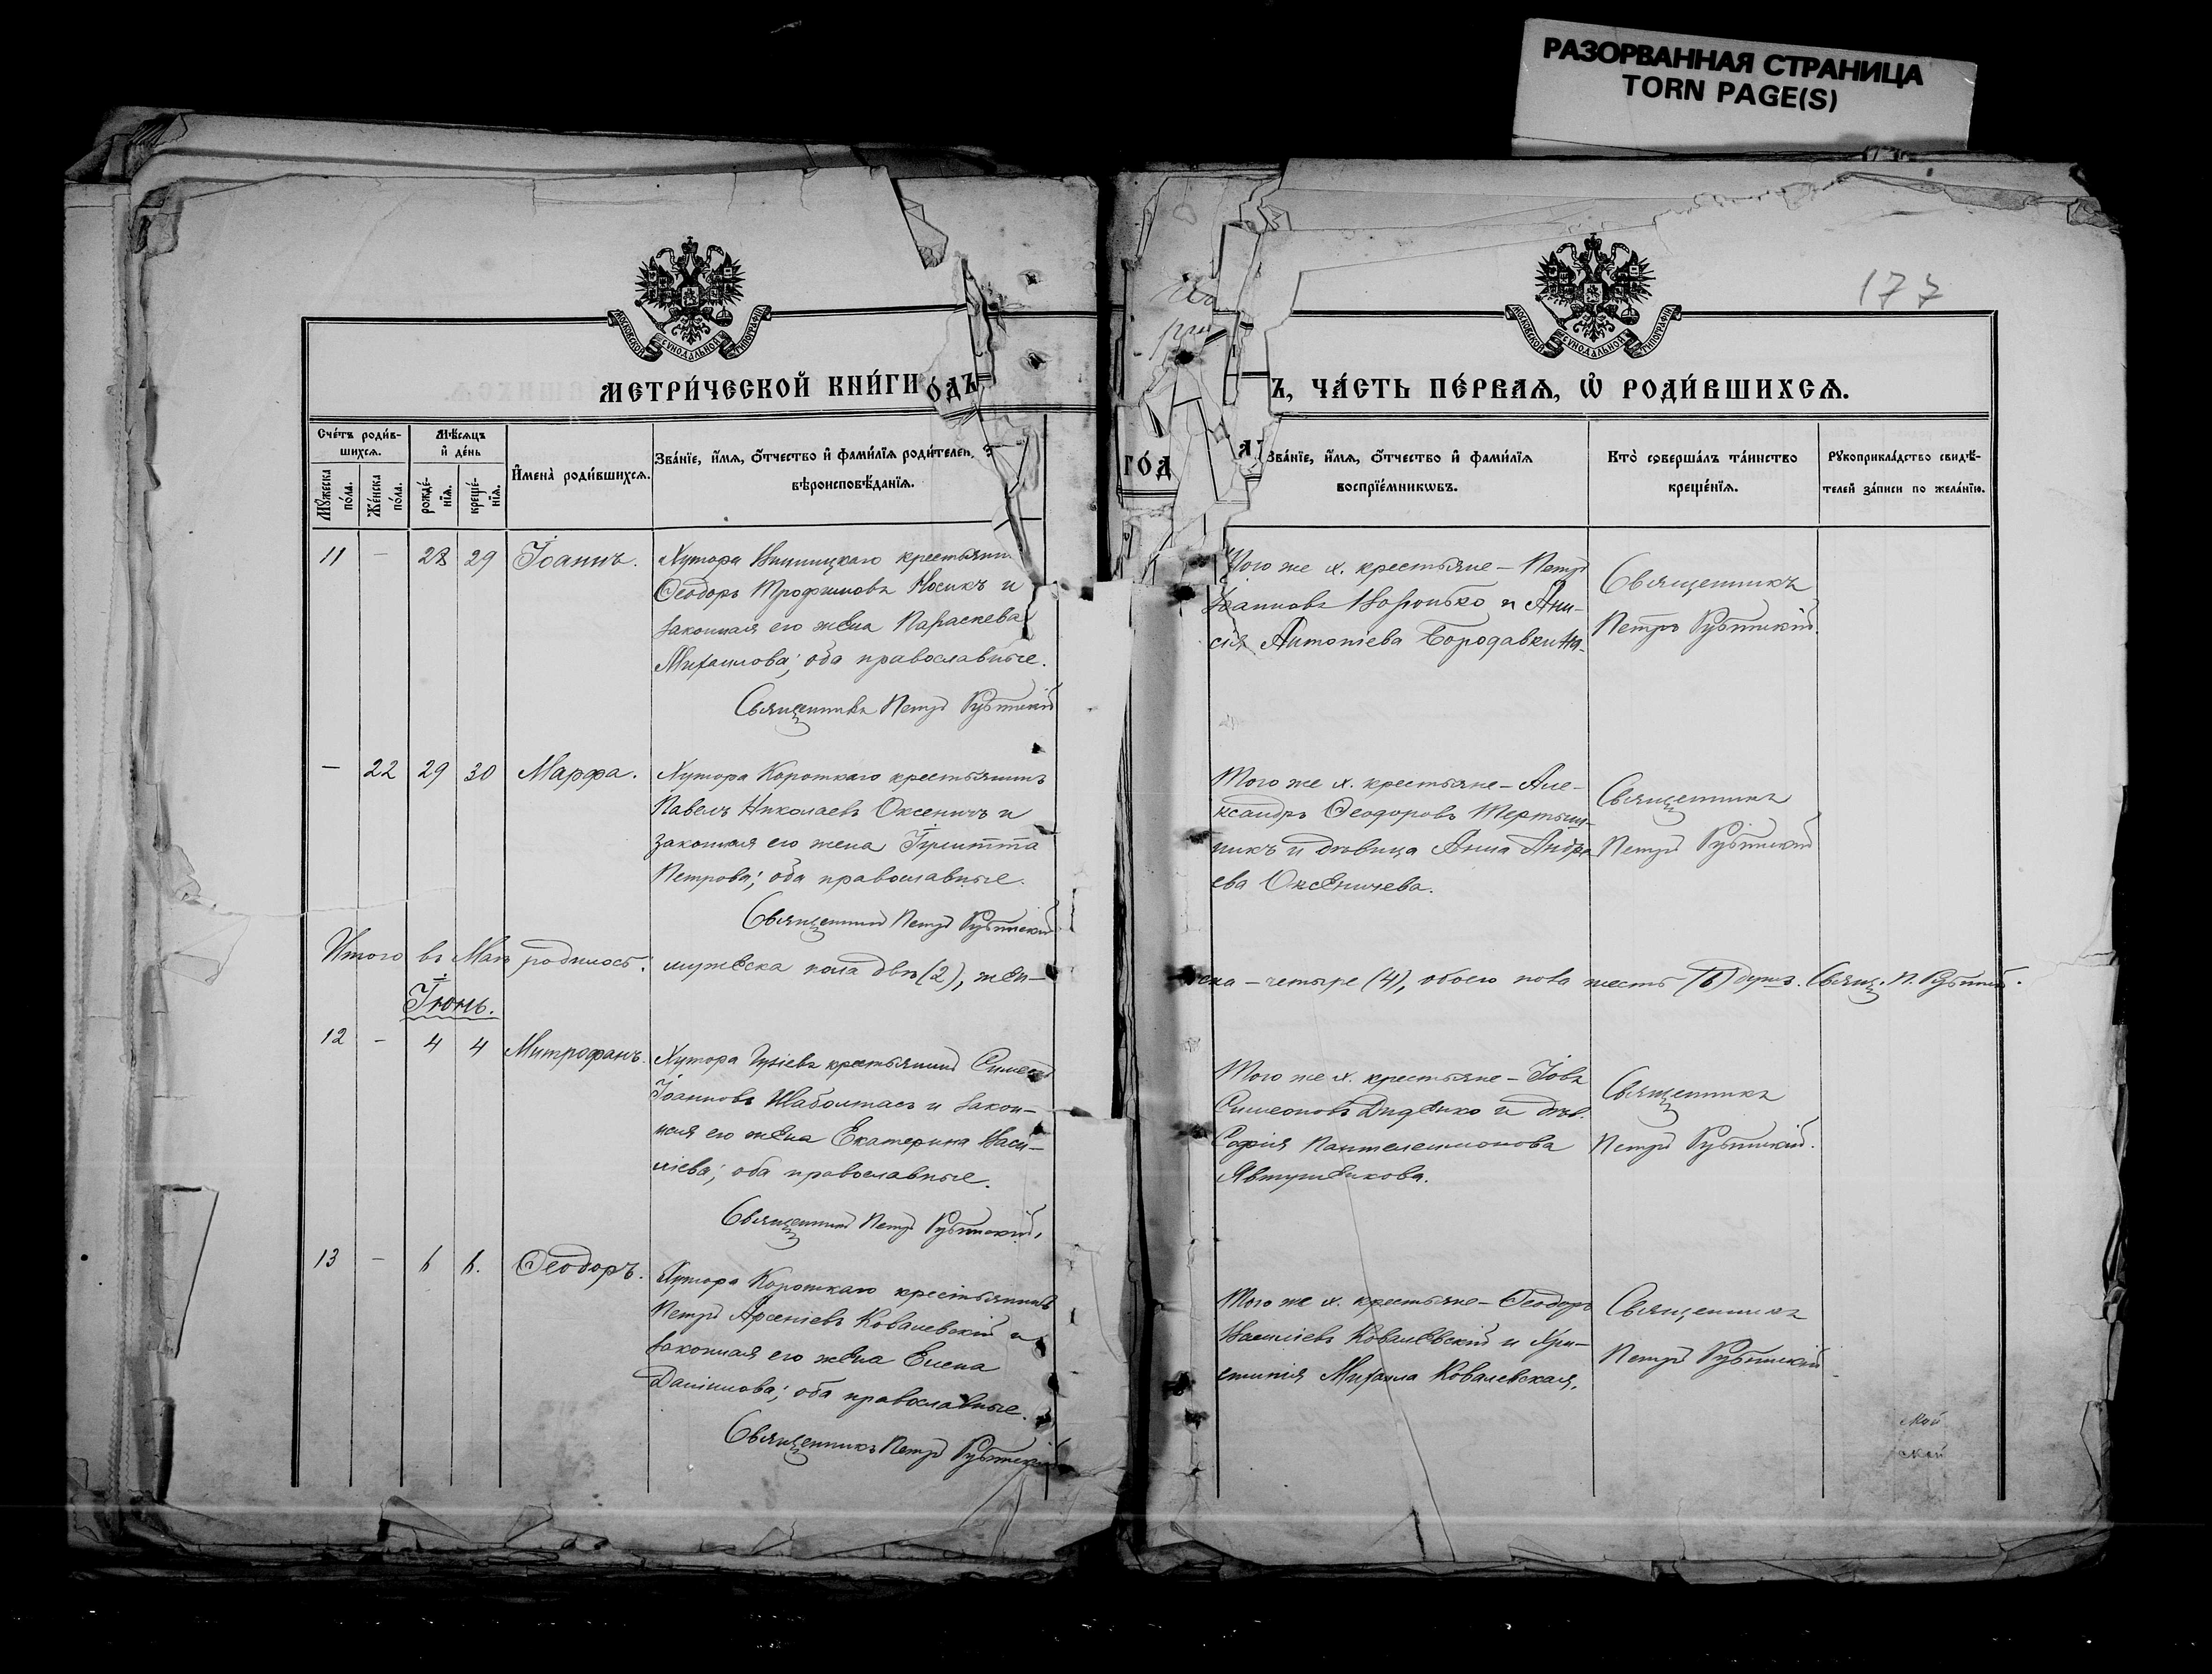 РАЗОРВАННАЯ СТРАНИЦА
TORN PAGE(S)
177
МОСКОВСКОЙ СѴНОДАЛЬНОЙ ТИПОГРАФІИ
МОСКОВСКОЙ СѴНОДАЛЬНОЙ ТИПОГРАФІИ
МЕТРИ́ЧЕСКОЙ КНИ́ГИ
ГО́Д
Ъ, ЧА́СТЬ ПЕ́РВАЯ, Ѡ҆ РОДИ́ВШИХСѦ.
Сче́тъ роди́в-
шихся.
Мѣ́сяцъ
и҆ де́нь
Мꙋ́жеска
по́ла.
Же́нска
по́ла.
рожде́-
нїя.
креще́-
нїя.
И҆мена̀ роди́вшихся.
Зва́нїе, и҆́мя, ѻ҆́тчество и҆ фами́лїя роди́телей,
вѣроисповѣ́данїя.
Зва́нїе, и҆́мя, ѻ҆́тчество и҆ фами́лїя
воспрїе́мникѡвъ.
Кто̀ соверша́лъ та́инство
креще́нїя.
Рꙋкоприкла́дство свидѣ́-
телей за́писи по жела́нїю.
11 — 28 29 Іоаннъ.
Хутора крестьянин
Ѳеодоръ Трофимовъ Носикъ и
законная его жена Параскева
Михаилова; оба православные.
Священникъ Петръ
Того же х. крестьяне — Петръ
Іоанновъ и Ани-
сія Антоніева Бородавкина.
Священникъ
Петръ
— 22 29 30 Марфа.
Хутора Короткаго крестьянинъ
Павелъ Николаевъ Оксеничъ и
законная его жена Іулитта
Петрова; оба православные.
Священникъ Петръ
Того же х. крестьяне — Але-
ксандръ Ѳеодоровъ Тертыш-
никъ и дѣвица Анна Андре
ева Оксеничева.
Священникъ
Петръ
Итого въ Маѣ родилось: мужеска пола двѣ (2), жен-
ска — четыре (4), обоего пола шесть (6) душъ. Свящ. П.
Іюнь.
12 — 4 4 Митрофанъ.
Хутора крестьянинъ Симеон
Іоанновъ Шаболтасъ и закон-
ная его жена Екатерина Васи-
ліева; оба православные.
Священникъ Петръ
Того же х. крестьяне — Іовъ
Симеоновъ Диденко и дѣв.
Софія Пантелеимонова
Явтушенкова.
Священникъ
Петръ
13 — 6 6. Ѳеодоръ.
Хутора Короткаго крестьянинъ
Петръ Арсеніевъ Ковалевскій и
законная его жена Елена
Даніилова; оба православные.
Священникъ Петръ
Того же х. крестьяне — Ѳеодоръ
Василіевъ Ковалевскій и Хри-
стинія Михаила Ковалевская.
Священникъ
Петръ